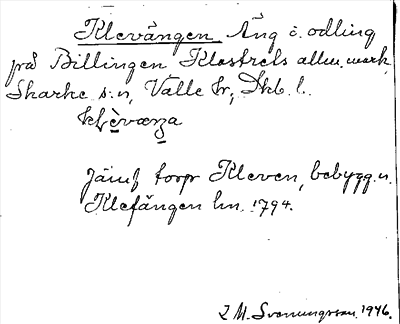 Klevängen Äng o. odling
på Billingen Klostrets allm. mark,
Skarke s:n, Valle hr, Skb. l.
klèvæŋa
Jämf torp Kleven, bebygg. n.
Klefängen lm. 1794.
M. Svenungsson. 1946.